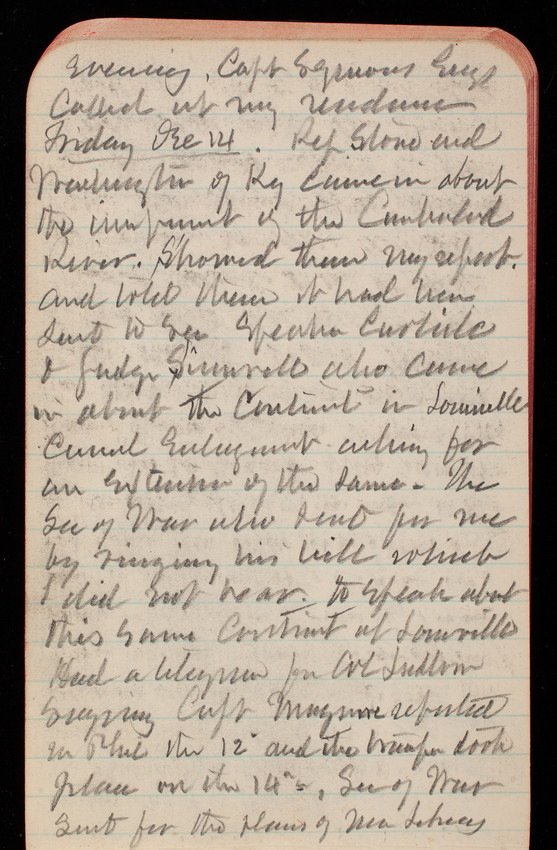 Evening, Capt Symons Engs
Called at my residence
Friday Dec 14. Rep Stone and
Washington of Ky came in about
the improvmt of the Cumberland
River. Showed them my report.
and told them it had been
sent to Sec Speaker Carlisle
& Judge also came
in about the Contract in Louisville
Canal Enlargement asking for
an Extension of the same - The
Sec of War also sent for me
by ringing his bell which
I did not hear. to speak about
this same Contract at Louisville
Had a telegram fm Col Ludlow
Saying Capt reported
in Phil the 12" and the transfer took
place on the 14"", Sec of War
sent for the plans of